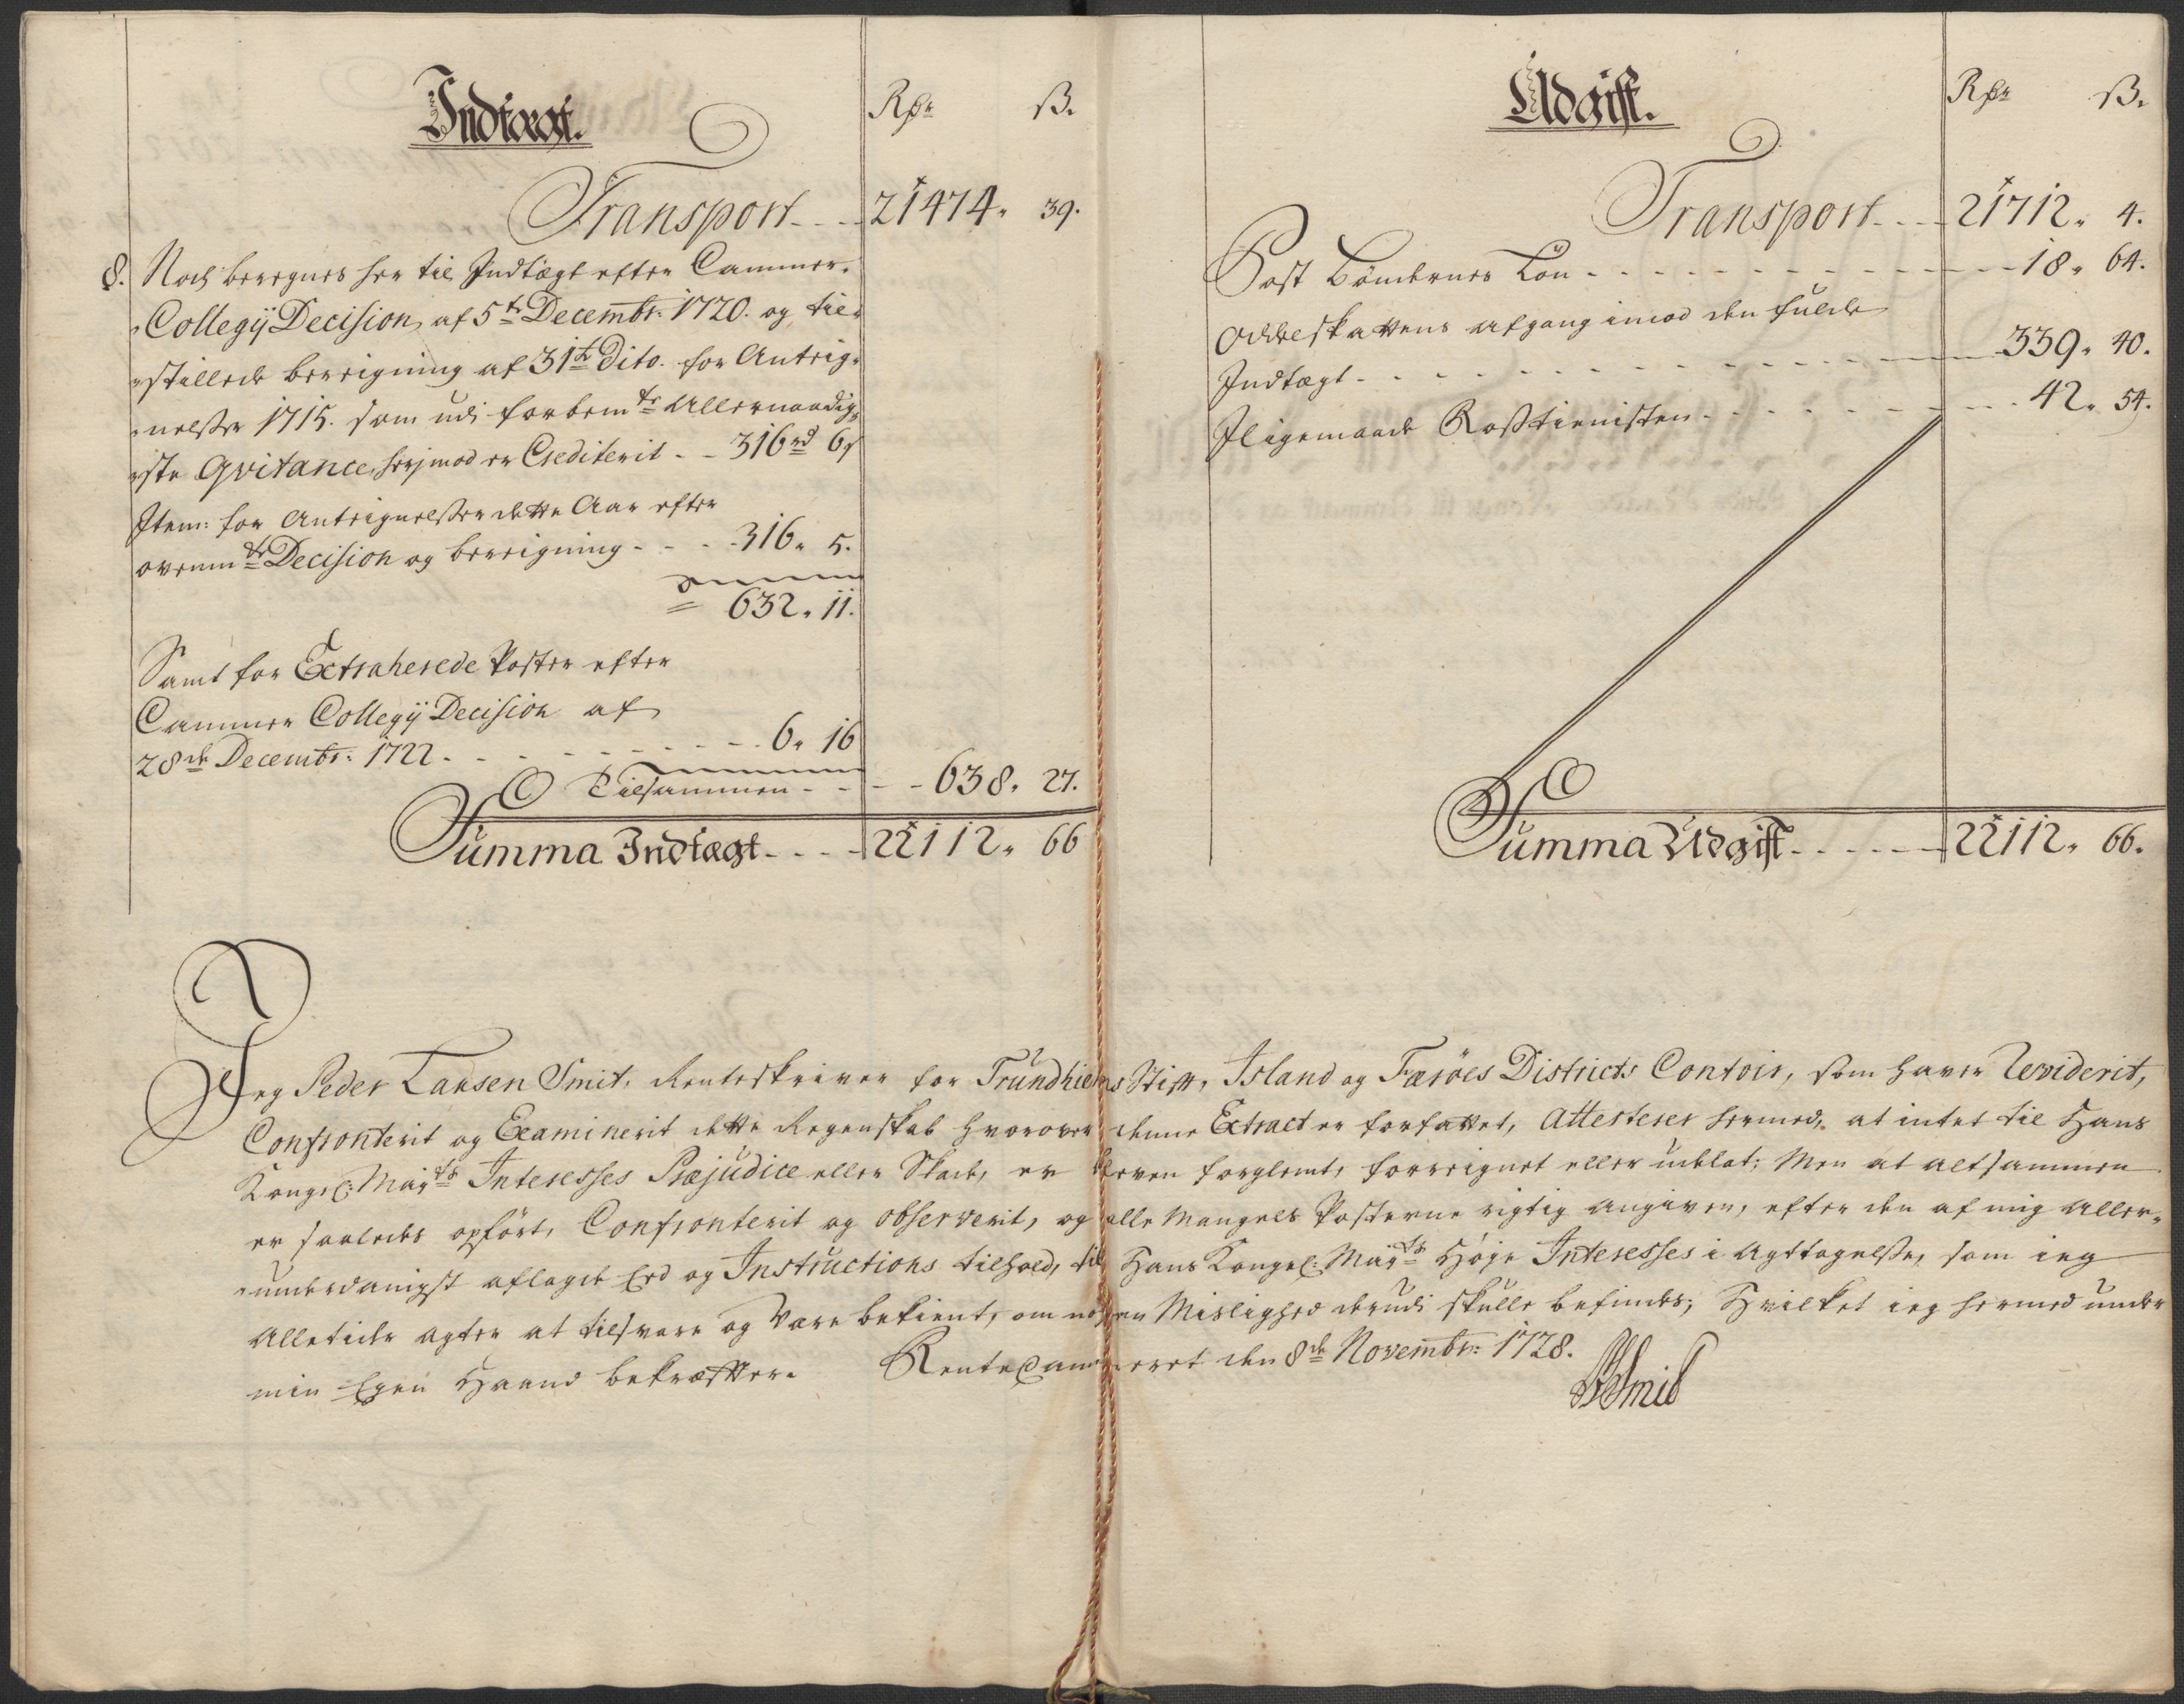 Indtægt.
Rdr ß.
Transport - - - 21474. 39.
8. Noch beregnes her til Indtægt efter Cammer-
Collegij Decision af 5te Decembr: 1720. og til-
stillede beregning af 31te Dito. for Anteig-
nelßer 1715. som udi forbemte Allernaadig-
ste Qvitance, herjmod er Crediterit - - 316rd 6ß
Item: for Anteignelßer dette Aar efter
ovenmte Decision og bereigning - - - 316. 5.
= 632. 11.
Samt for Extraherede Poster efter
Cammer Collegij Decision af
28de Decembr: 1722. - - - - - - 6. 16
Tilsammen - - - - 638. 27.
Summa Indtægt - - - - 22112. 66
Udgift.
Rdr ß.
Transport - - - 21712. 4.
PostBöndernes Lön - - - - - - 18. 64.
Oddelskattens afgang imod den fulde
Indtægt - - - - - - 339. 40.
Iligemaade Roßtienisten - - - - - - 42. 54.
Summa Udgift - - - - - 22112. 66.
Jeg Peder Larsen Smit, Renteskriver for Trundhiems Stift, Island og Færöes Districts Contoir, som haver Reviderit,
Confronterit og Examinerit dette Regenskab hvorover denne Extract er forfattet, Attesterer hermed, at intet til Hans
Kongel: Mayts Interesses Præjudice eller Skade, er bleven forglemt, forreignet eller udelat; Men at altsammen
er saaledes opfört, Confronterit og observerit, og alle Mangels Posterne rigtig angiven, efter den af mig Aller-
underdanigst aflagde Eed og Instructions tilhold, til Hans Kongel: Mayts Høje Interesses i Agttagelße, som ieg
Alletider agter at tilsvare og Være bekient, om nogen Mislighed derudi skulle befindes; Hvilket ieg hermed under
min Egen Haand bekræfter. RenteCammeret den 8de Novembr: 1728.
PLSmit